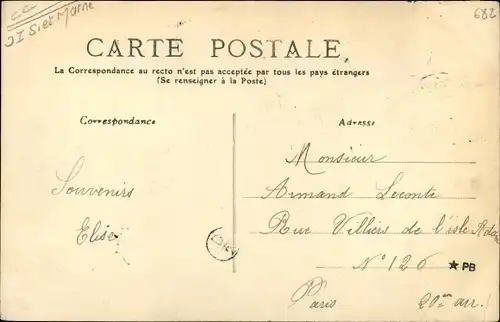 CARTE POSTALE
La Correspondance au recto n'est pas acceptée par tous les pays étrangers
(Se renseigner à la Poste)
Correspondance
Adresse
Monsieur
Souvenirs
Armand Leconte
Elise
Rue Villiers de l'isle Adam
N° 126
★PB
Paris 20em arr.